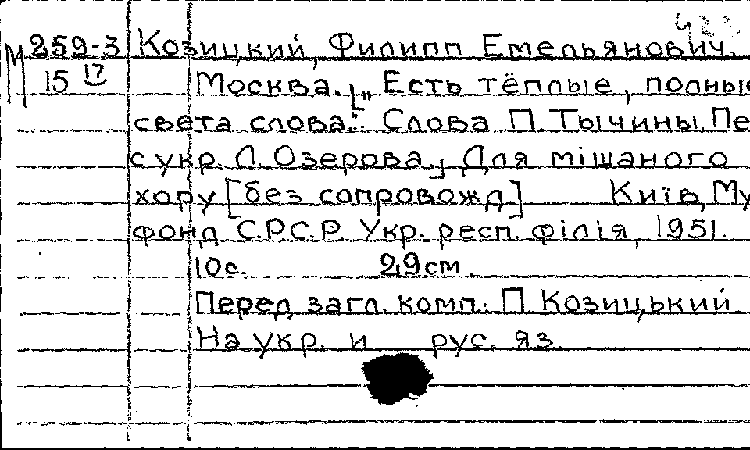 М 259-3 Козицкий, Филипп Емельянович.
15 17 Москва. [„Есть тёплые, полные
света слова.": Слова П. Тычины. Пе
с укр. Л. Озерова.] Для мішаного
хору [без сопровожд.] Київ, Му
фонд С.Р.С.Р. Укр. респ. філія, 1951.
10с. 29см.
Перед загл. комп.: П. Козицький.
На укр. и рус. яз.